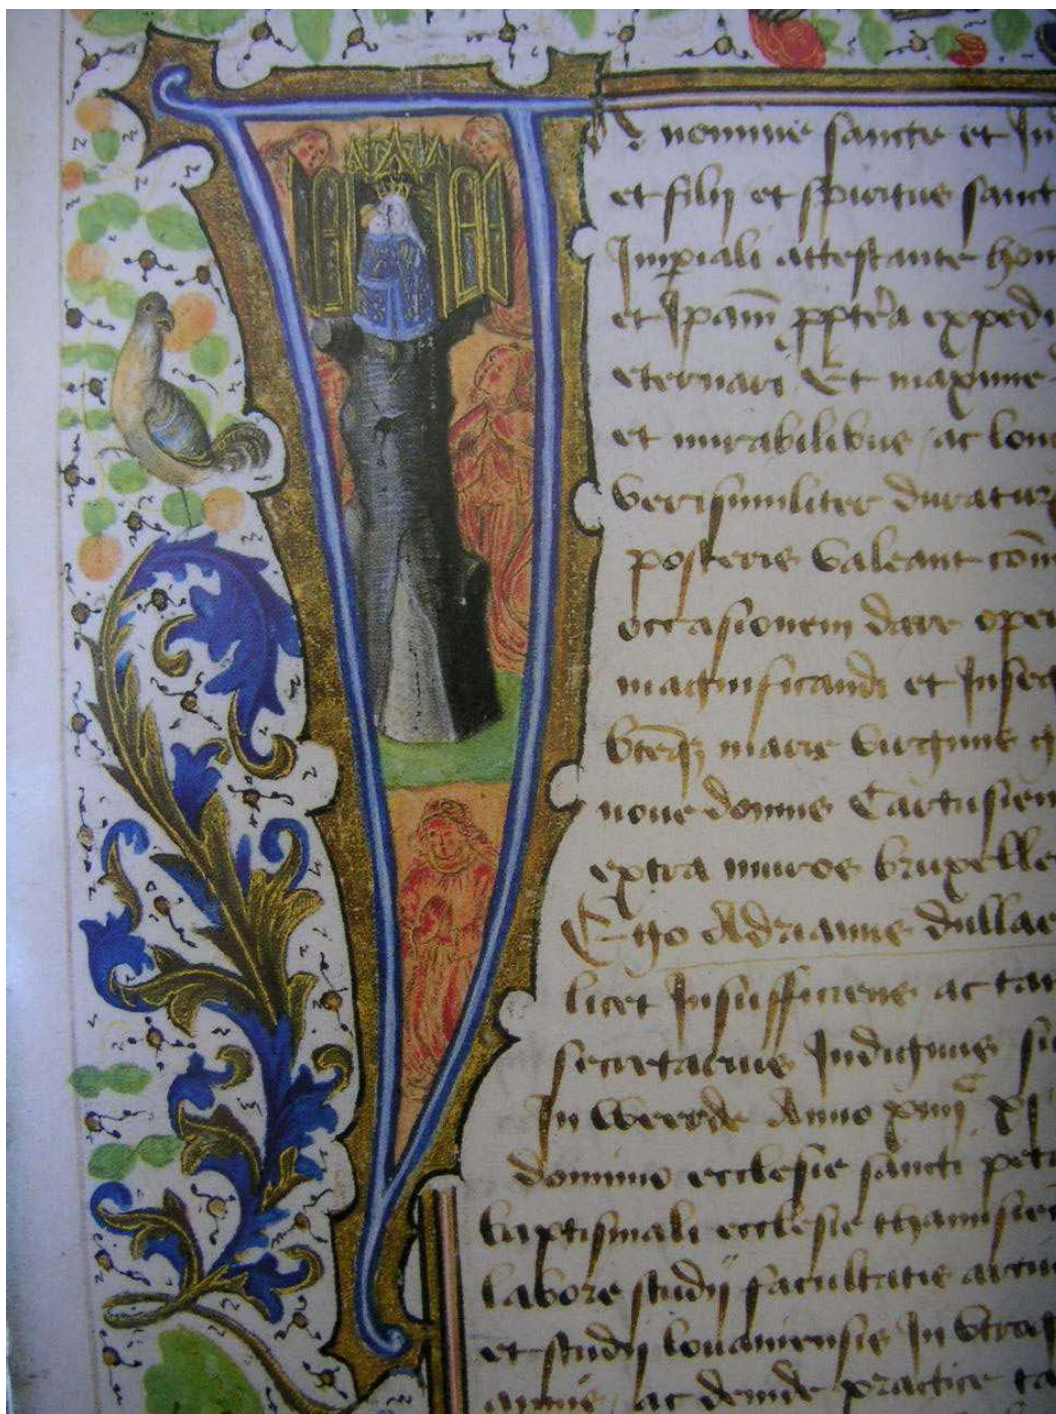 Ad nomine sancte et In
et filij et spiritus sanct
Imperiali attestante hom
et Ipam pptea expedi
eternari Et maxime
et mirabilibus ac lon
verisimiliter duratur
posteris valeant com
occasionem dare oper
magnificandi et Inseq
bteq marie virginis
noue domus Cartusien
extra muros bruxelle
Ego Adrianus dullae
licet Insufficiens ac tan
secretarius Indignus su
In weerde Anno xiiijc xj
domino ecclesie sancti petri
baptismali ecclesie thamisien
labore studij facultatis arciu
et studij louaniensis In vtroq
annis ac deinde practice ta